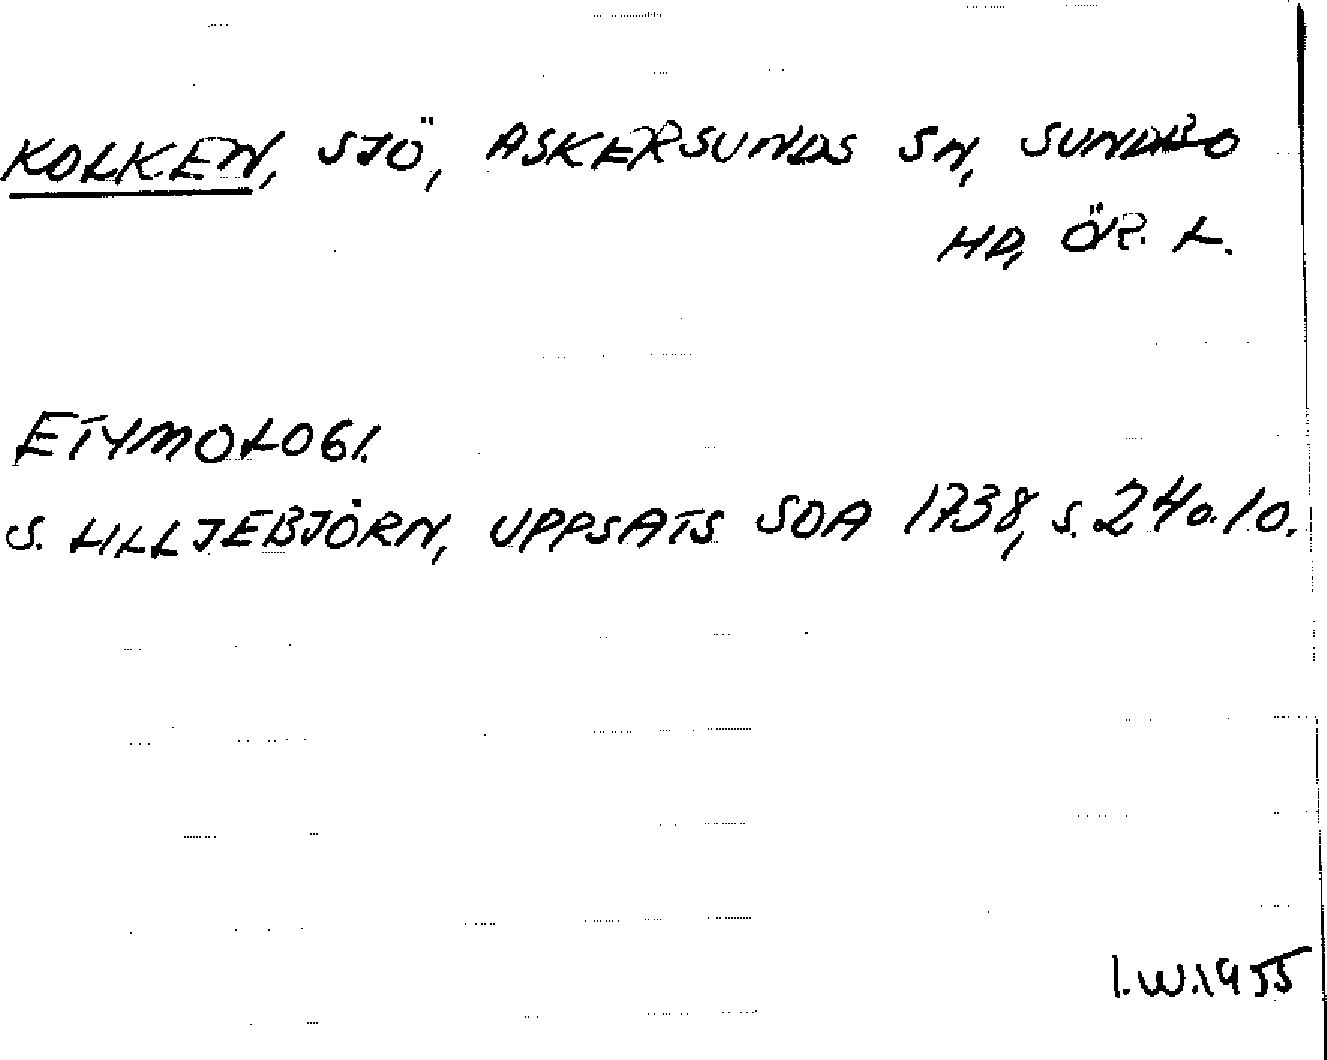 KOLKEN, SJÖ, ASKERSUNDS SN, SUNDBO
HD, ÖR. L.
ETYMOLOGI.
S. LILLJEBJÖRN, UPPSATS SOA 1738, S. 24 o. 10.
I.W.1955